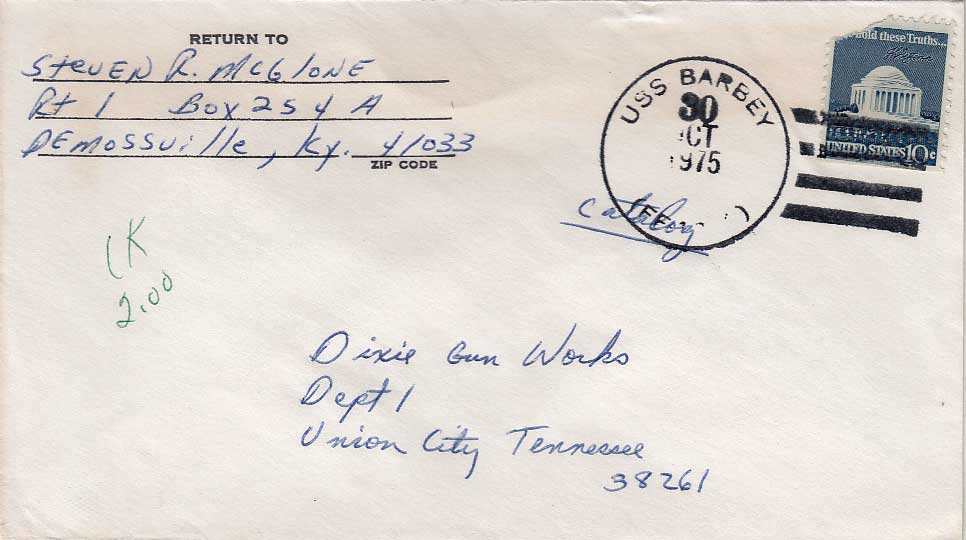 RETURN TO
Steven R. McGlone
Rt 1 Box 254 A
Demossville, Ky. 41033
ZIP CODE
USS BARBEY
30
OCT
1975
hold these Truths...
UNITED STATES 10c
Catalog
CK
2.00
Dixie Gun Works
Dept 1
Union City Tennessee
38261